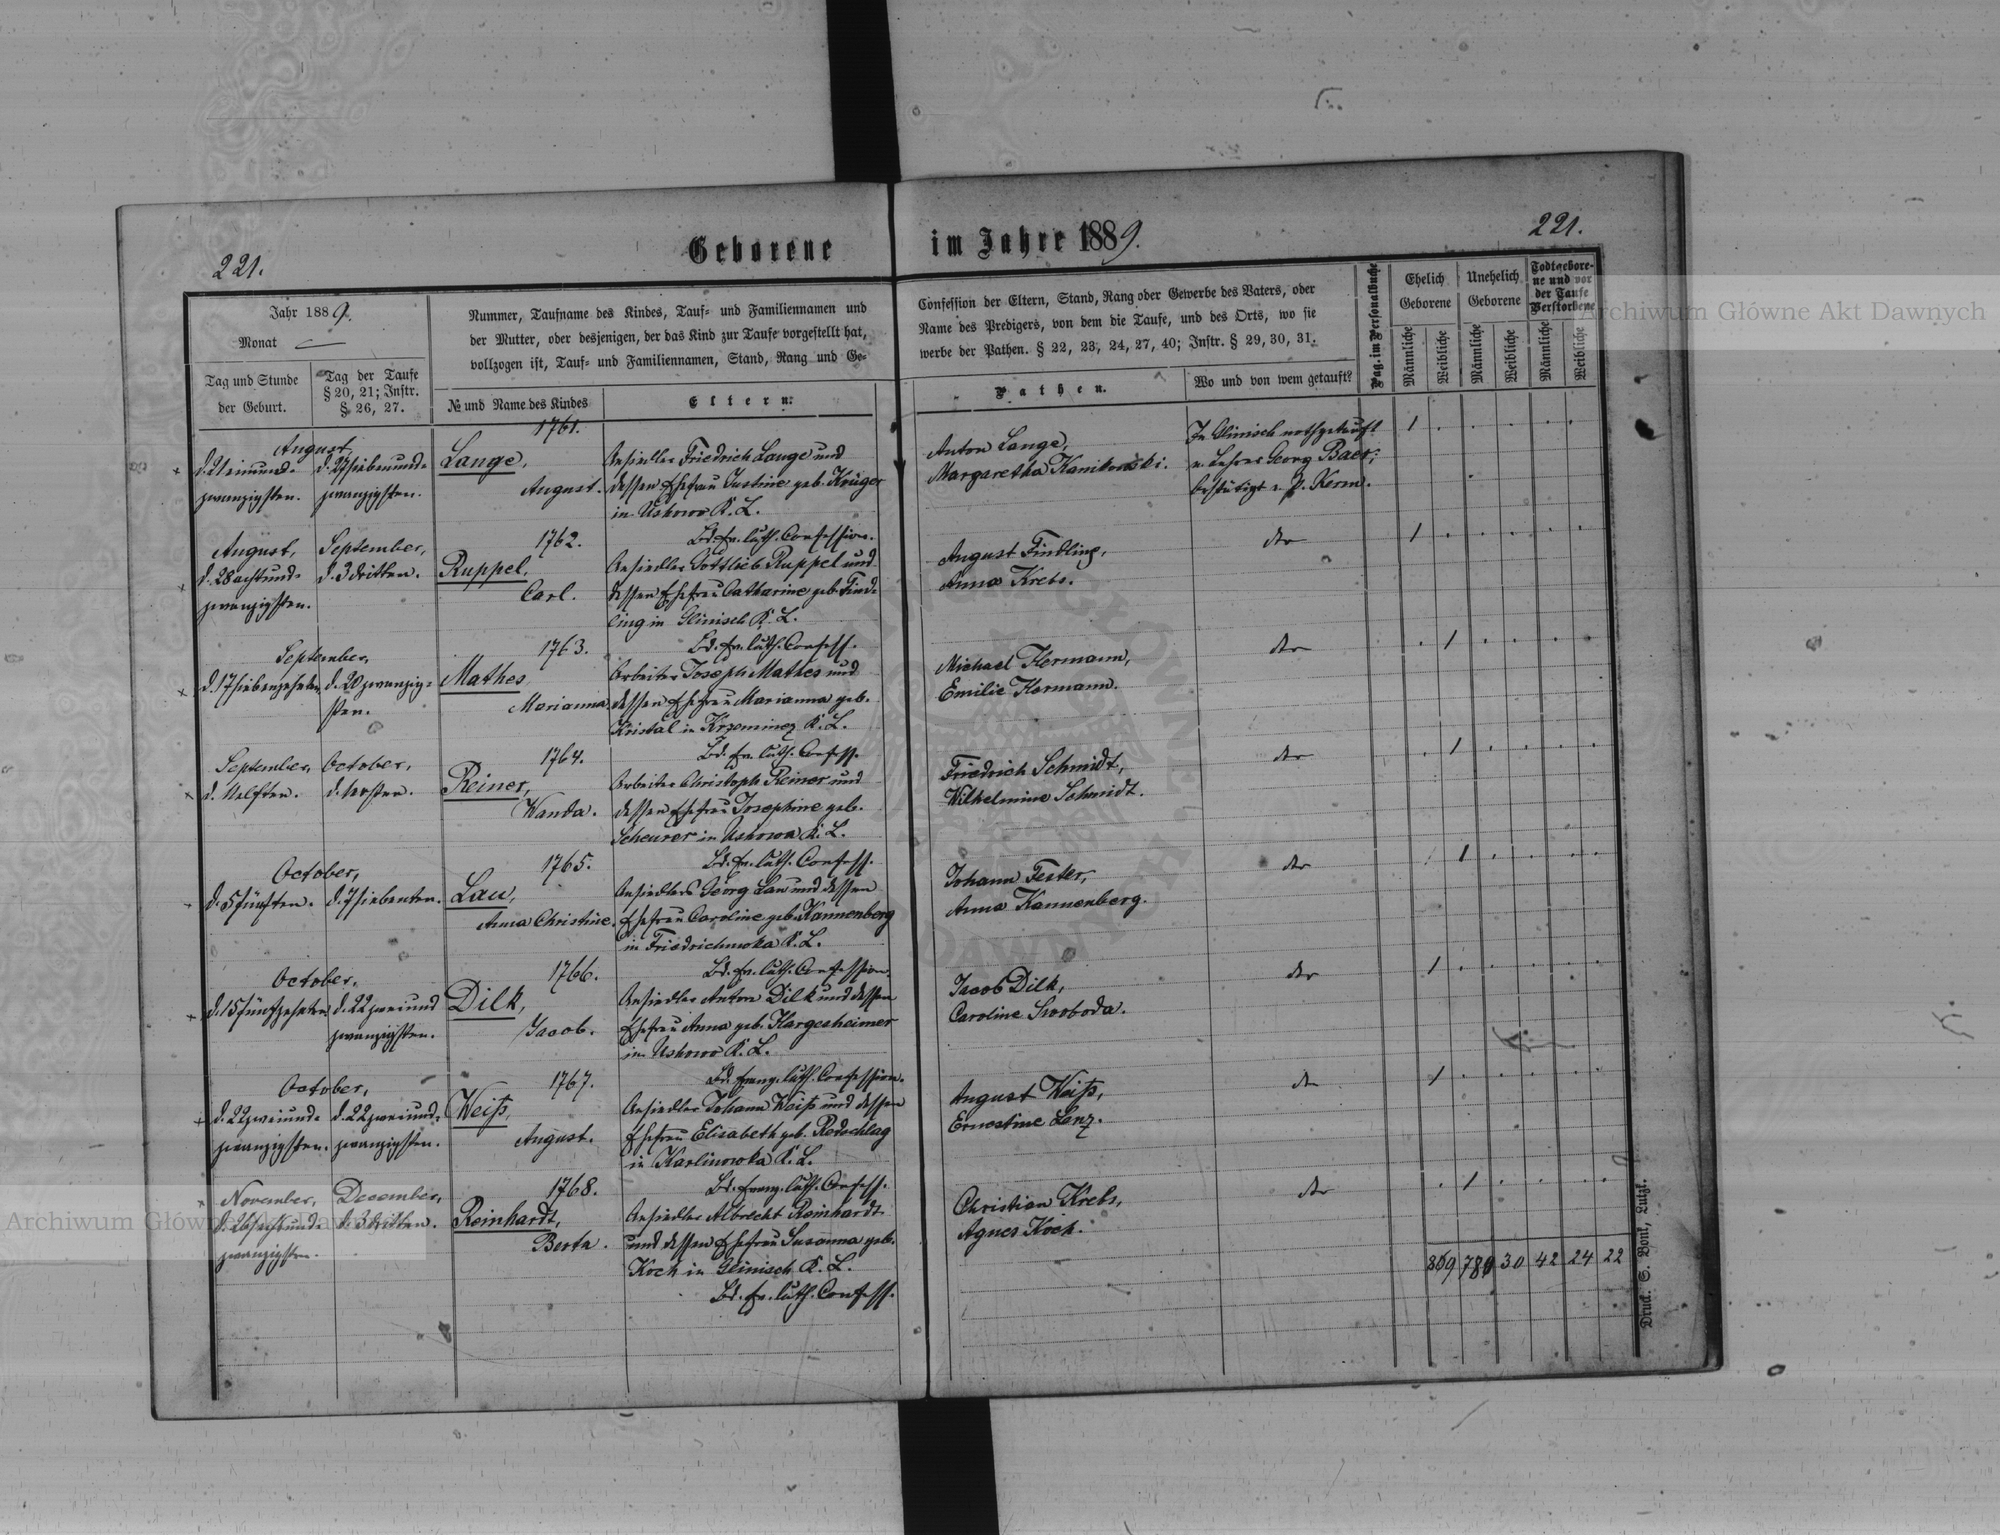 221.
Geborene
im Jahre 1889.
221.
Jahr 1889.
Monat
Tag und Stunde
der Geburt.
Tag der Taufe
§ 20, 21; Instr.
§. 26, 27.
Nummer, Taufname des Kindes, Tauf- und Familiennamen und
der Mutter, oder desjenigen, der das Kind zur Taufe vorgestellt hat,
vollzogen ist, Tauf- und Familiennamen, Stand, Rang und Ge-
№ und Name des Kindes
Eltern.
Confession der Eltern, Stand, Rang oder Gewerbe des Vaters, oder
Name des Predigers, von dem die Taufe, und des Orts, wo sie
werbe der Pathen. § 22, 23, 24, 27, 40; Instr. § 29, 30, 31.
Pathen.
Wo und von wem getauft?
Pag. im Personalbuche
Ehelich
Geborene
Unehelich
Geborene
Todtgebore-
ne und vor
der Taufe
Verstorbene
Männliche
Weibliche
Männliche
Weibliche
Männliche
Weibliche
August
d. 21 einund-
zwanzigsten.
d. 27 siebenund-
zwanzigsten.
1761.
Lange,
August.
Ansiedler Friedrich Lange und
dessen Ehefrau Justine geb. Krüger
in Uskowo K. L.
Bd. ev. luth. Confession.
Anton Lange,
Margaretha Kanikowski.
In Glinisch nothgetauft
v. Lehrer Georg Baer;
bestätigt v. P. Kerm.
1
August,
d. 28 achtund-
zwanzigsten.
September,
d. 3 dritten.
1762.
Ruppel,
Carl.
Ansiedler Gottlieb Ruppel und
dessen Ehefrau Catharine geb. Find-
ling in Glinisch K. L.
Bd. ev. luth. Confess.
August Findling,
Anna Krebs.
dto
1
September,
d. 17 siebenzehnten
d. 20 zwanzig-
sten.
1763.
Mathes
Marianna.
Arbeiter Joseph Mathes und
dessen Ehefrau Marianna geb.
Kristal in Krzeminez K. L.
Bd. ev. luth. Confess.
Michael Hermann,
Emilie Hermann.
dto
1
September,
d. 11 elften.
October,
d. 1 ersten.
1764.
Reiner,
Wanda.
Arbeiter Christoph Reiner und
dessen Ehefrau Josephine geb.
Scheurer in Uskowo K. L.
Bd. ev. luth. Confess.
Friedrich Schmidt,
Wilhelmine Schmidt.
dto
1
October,
d. 5 fünften.
d. 7 siebenten.
1765.
Lau,
Anna Christine.
Ansiedler Georg Lau und dessen
Ehefrau Caroline geb. Kannenberg
in Friedrichowka K. L.
Bd. ev. luth. Confession.
Johann Fester,
Anna Kannenberg.
dto
1
October,
d. 15 fünfzehnten
d. 22 zweiund
zwanzigsten.
1766.
Dilk,
Jacob.
Ansiedler Anton Dilk und dessen
Ehefrau Anna geb. Hargesheimer
in Uskowo K. L.
Bd. evang. luth. Confession.
Jacob Dilk,
Caroline Swoboda.
dto
1
October,
d. 22 zweiund-
zwanzigsten.
d. 22 zweiund-
zwanzigsten.
1767.
Weiß,
August.
Ansiedler Johann Weiß und dessen
Ehefrau Elisabeth geb. Radschlag
in Karlinowka K. L.
Bd. evang. luth. Confess.
August Weiß,
Ernestine Lenz.
dto
1
November,
d. 26 sechsund-
zwanzigsten.
December,
d. 3 dritten.
1768.
Reinhardt,
Berta.
Ansiedler Albrecht Reinhardt
und dessen Ehefrau Susanna geb.
Koch in Glinisch K. L.
Bd. ev. luth. Confess.
Christian Krebs,
Agnes Koch.
dto
1
30 42 24 22
Druck. S. Bonk, Lutzk.
Archiwum Główne Akt Dawnych